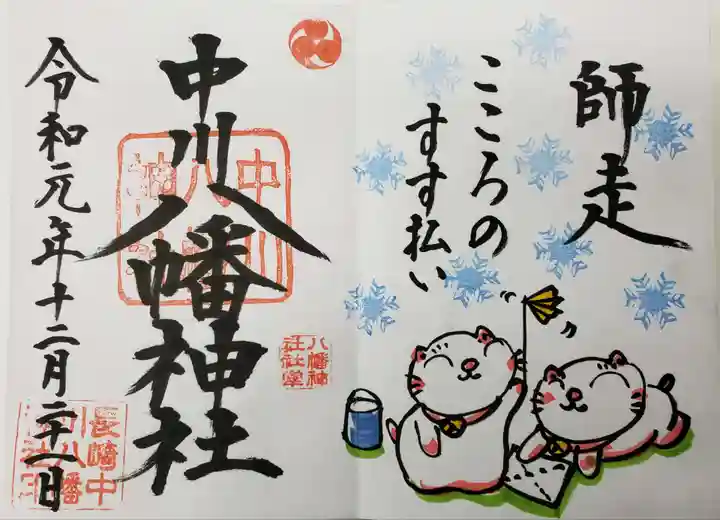 師走
こころの
すす払い
中川八幡神社
令和元年十二月二十一日
中川
八幡
神社
八幡神
社社掌
長崎中
川八幡